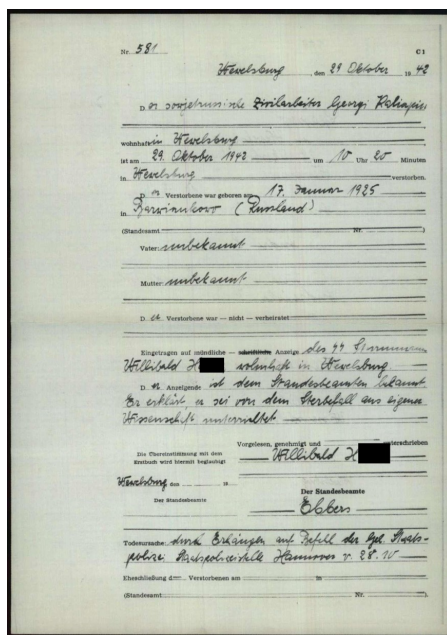 Nr. 581 C 1
Wewelsburg, den 29 Oktober 19 42
D er sowjetrussische Zivilarbeiter Georgi
wohnhaft in Wewelsburg
ist am 29. Oktober 1942 um 10 Uhr 20 Minuten
in Wewelsburg verstorben.
D er Verstorbene war geboren am 17. Januar 1925
in Barwinkowo (Russland)
(Standesamt Nr. )
Vater: unbekannt
Mutter: unbekannt
D er Verstorbene war — nicht — verheiratet
Eingetragen auf mündliche — schriftliche Anzeige des SS
Willibald H wohnhaft in Wewelsburg
D er Anzeigende ist dem Standesbeamten bekannt
Er erklärt er sei von dem Sterbefall aus eigener
Wissenschaft unterrichtet
Vorgelesen, genehmigt und unterschrieben
Willibald H
Die Übereinstimmung mit dem
Erstbuch wird hiermit beglaubigt
Wewelsburg den 19
Der Standesbeamte
Der Standesbeamte
Ebbers
Todesursache: durch Erhängen auf Befehl der Geh. Staats-
polizei Staatspolizeistelle Hannover v. 28.10
Eheschließung d Verstorbenen am in
(Standesamt Nr. ).